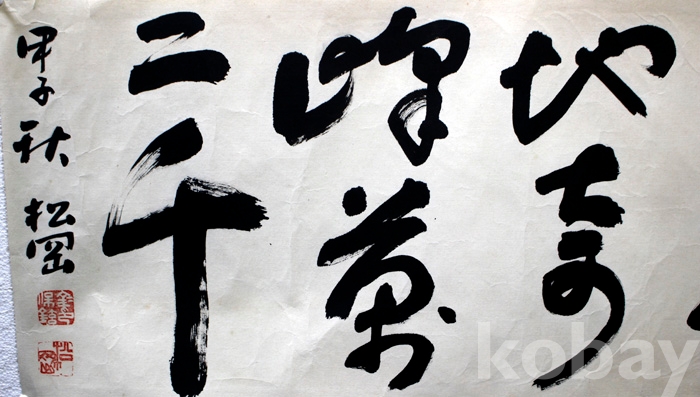 地奇
峰萬
二千
甲子秋 松岡
kobay